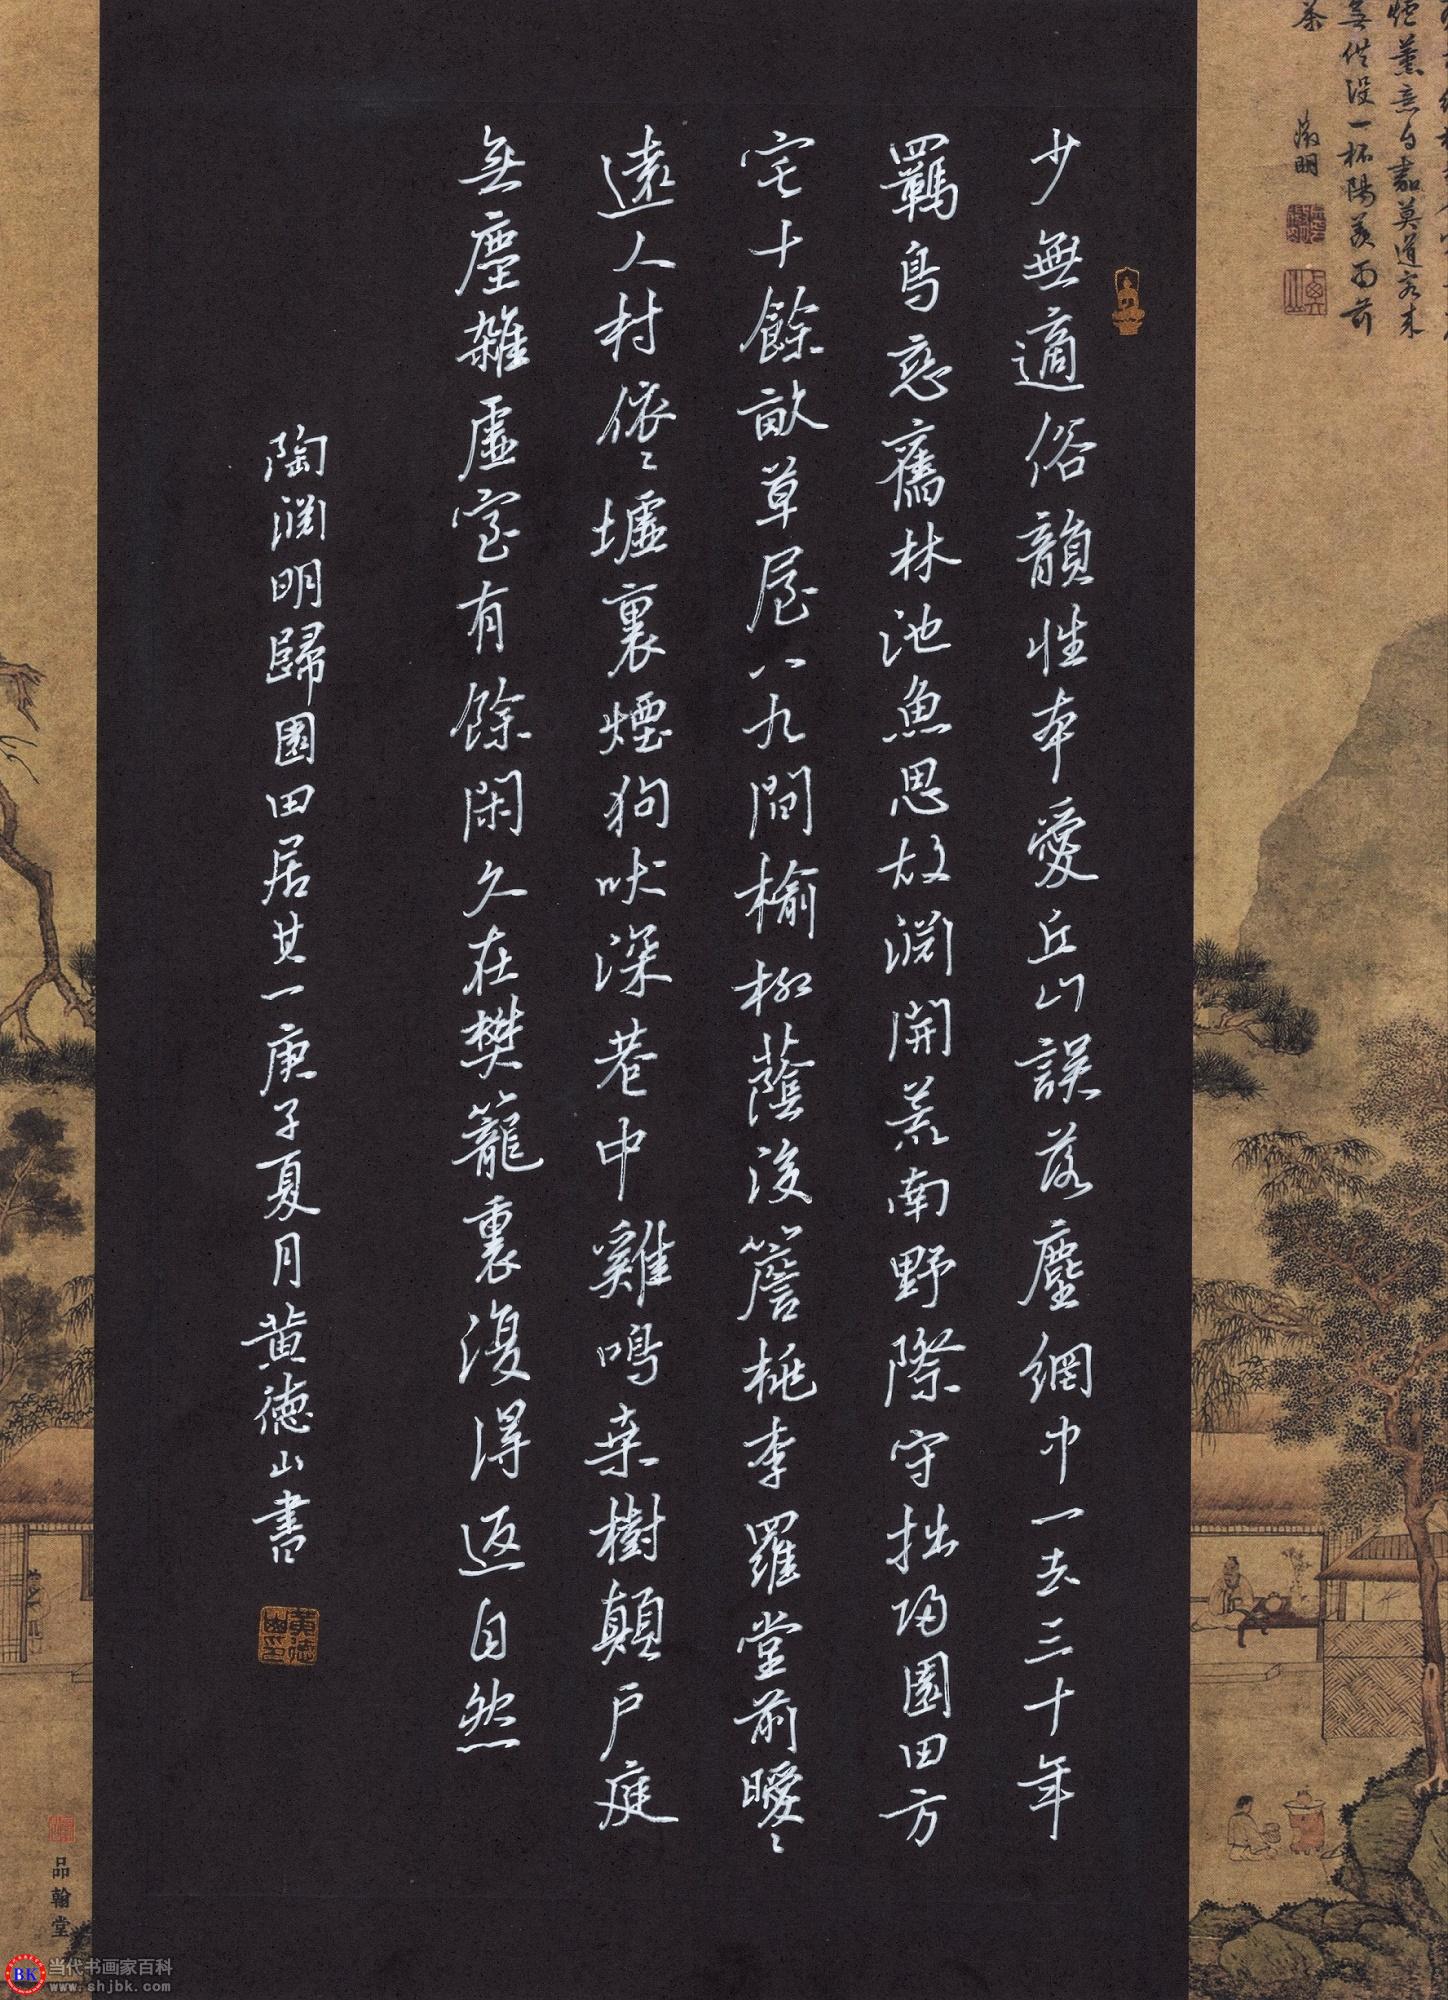 爐薰意自嘉莫道客來
無供設一杯陽羨雨前
茶
徵明
少無適俗韻性本愛丘山誤落塵網中一去三十年
羈鳥恋舊林池魚思故淵開荒南野際守拙归園田方
宅十餘畝草屋八九間榆柳蔭後簷桃李羅堂前曖〻
遠人村依〻墟裏煙狗吠深巷中雞鳴桑樹顛戶庭
無塵雜虛室有餘閑久在樊籠裏復得返自然
陶淵明歸園田居其一庚子夏月黃德山書
黃德山印
品翰堂
BK
当代书画家百科
www.shjbk.com